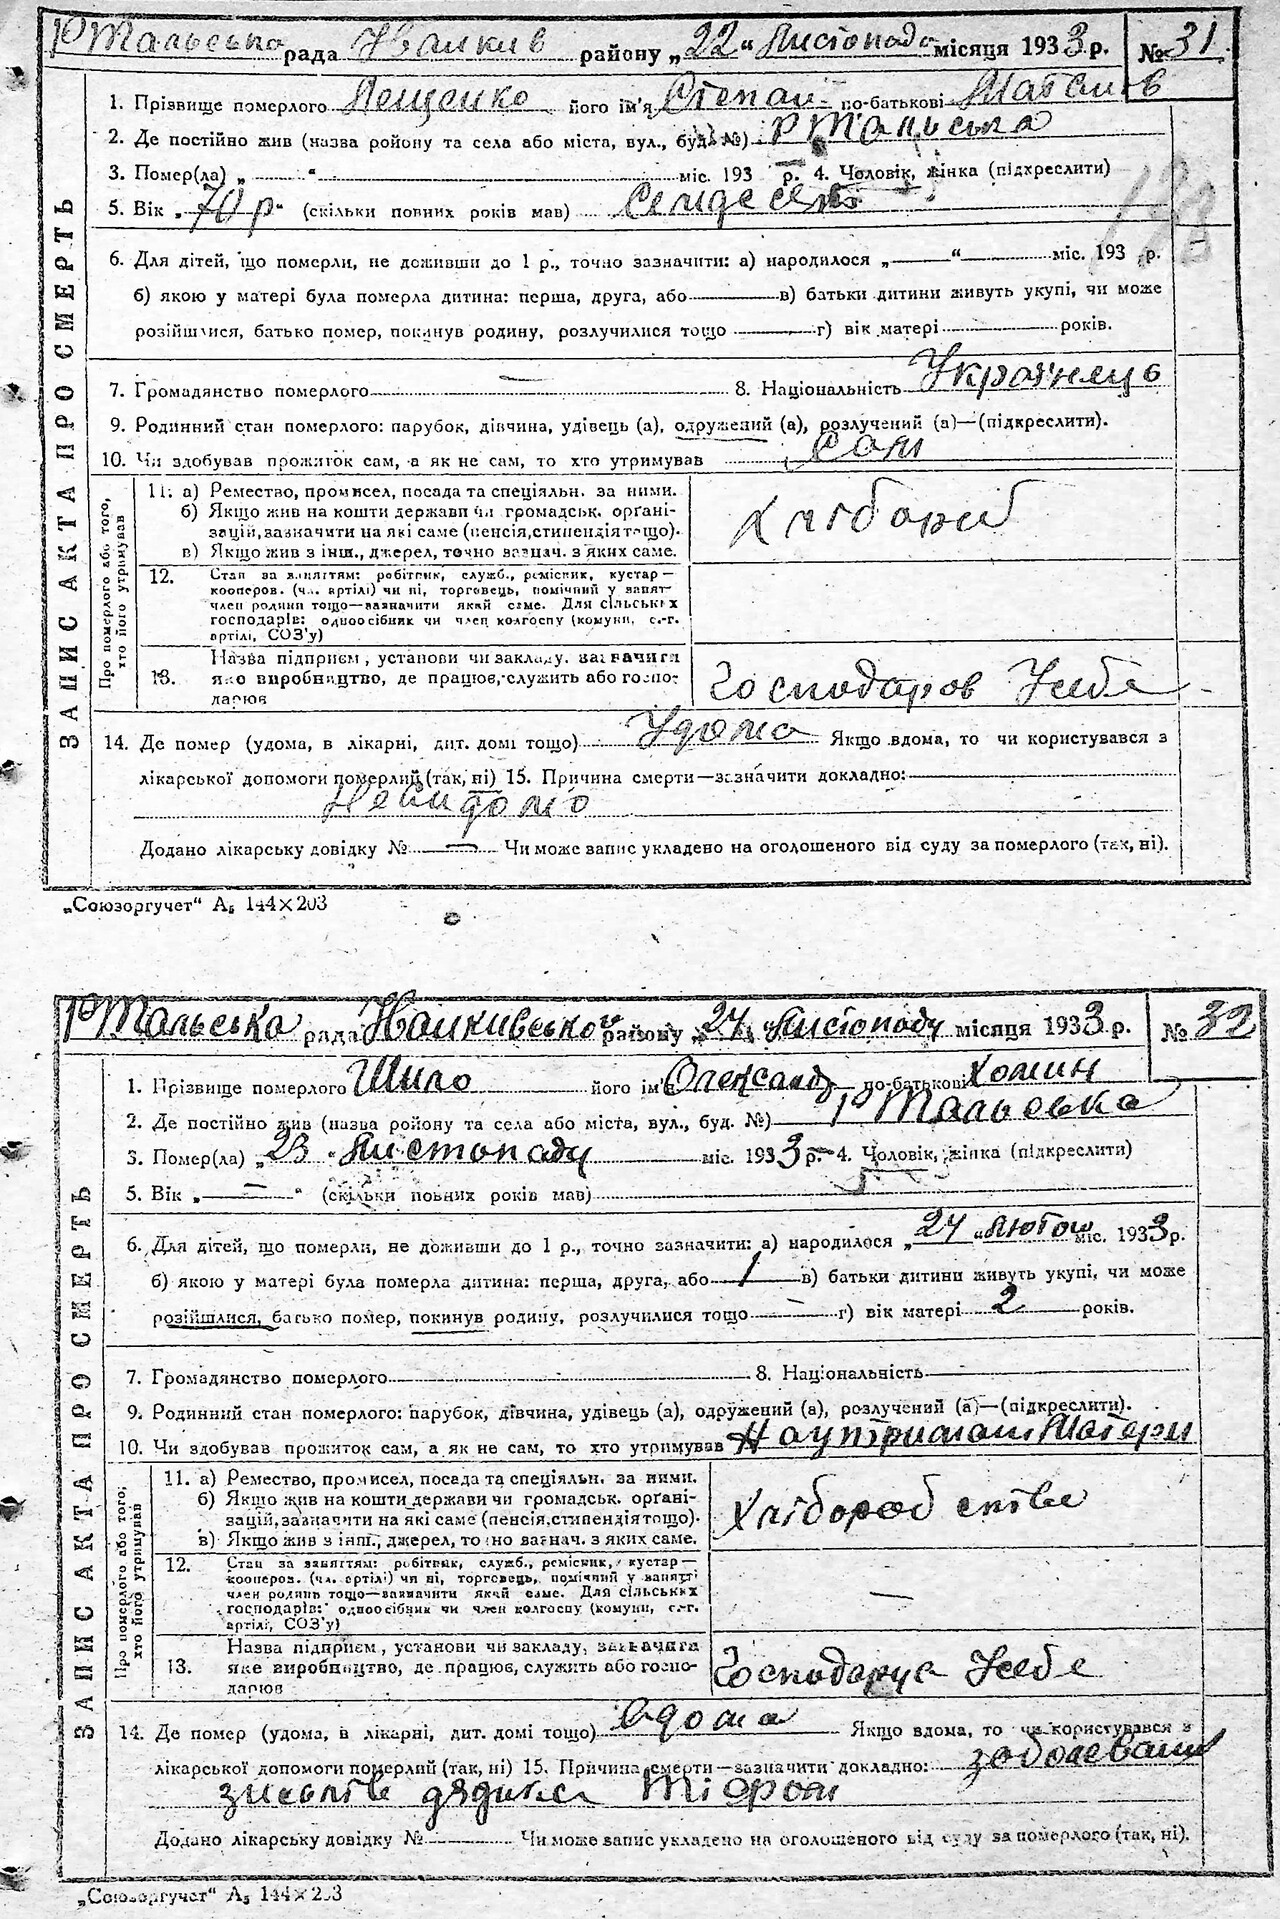 РТальська рада Іванкив району „22“ Листопада місяця 1933 р. № 31
1. Прізвище померлого Лещенко його ім'я Степан по-батькові
2. Де постійно жив (назва ройону та села або міста, вул., буд. №) РТальська
3. Помер(ла) „ “ міс. 193 р. 4. Чоловік, жінка (підкреслити)
5. Вік „70 р“ (скільки повних років мав) Семдесять
6. Для дітей, що померли, не доживши до 1 р., точно зазначити: а) народилося „ “ міс. 193 р.
б) якою у матері була померла дитина: перша, друга, або в) батьки дитини живуть укупі, чи може
розійшлися, батько помер, покинув родину, розлучилися тощо г) вік матері років.
7. Громадянство померлого — 8. Національність Украінець
9. Родинний стан померлого: парубок, дівчина, удівець (а), одружений (а), розлучений (а)—(підкреслити).
10. Чи здобував прожиток сам, а як не сам, то хто утримував Сам
ЗАПИС АКТА ПРО СМЕРТЬ
Про померлого або того, хто його утримував
11. а) Ремество, промисел, посада та спеціяльн. за ними.
б) Якщо жив на кошти держави чи громадськ. орґані-
зацій, зазначити на які саме (пенсія, стипендія тощо).
в) Якщо жив з інш., джерел, точно зазнач. з яких саме.
Хлібороб
12. Стан за заняттям: робітник, служб., ремісник, кустар—
кооперов. (чл. артілі) чи ні, торговець, помічний у занят-
член родини тощо—зазначити який саме. Для сільських
господарів: одноосібник чи член колгоспу (комуни, с.-г.
артілі, СОЗ'у)
13. Назва підприєм, установи чи закладу, зазначити
яке виробництво, де працює, служить або госпо-
дарює
Господаров Усебе
14. Де помер (удома, в лікарні, дит. домі тощо) Удома Якщо вдома, то чи користувався з
лікарської допомоги померлий (так, ні) 15. Причина смерти—зазначити докладно:
Невидомо
Додано лікарську довідку № — Чи може запис укладено на оголошеного від суду за померлого (так, ні).
„Союзоргучет“ А₅ 144×203
РТальська рада Іванкивськой району „27“ Листопаду місяця 1933 р. № 32
1. Прізвище померлого Шило його ім'я Олександ по-батькові Хомин
2. Де постійно жив (назва ройону та села або міста, вул., буд. №) РТальська
3. Помер(ла) „23 Листопаду міс. 1933 р. 4. Чоловік, жінка (підкреслити)
5. Вік „—“ (скільки повних років мав)
6. Для дітей, що померли, не доживши до 1 р., точно зазначити: а) народилося „24“ лютого міс. 1933 р.
б) якою у матері була померла дитина: перша, друга, або 1 в) батьки дитини живуть укупі, чи може
розійшлися, батько помер, покинув родину, розлучилися тощо — г) вік матері 2 років.
7. Громадянство померлого 8. Національність
9. Родинний стан померлого: парубок, дівчина, удівець (а), одружений (а), розлучений (а)—(підкреслити).
10. Чи здобував прожиток сам, а як не сам, то хто утримував Наутриманні Матери
ЗАПИС АКТА ПРО СМЕРТЬ
Про померлого або того, хто його утримував
11. а) Ремество, промисел, посада та спеціяльн. за ними.
б) Якщо жив на кошти держави чи громадськ. орґані-
зацій, зазначити на які саме (пенсія, стипендія тощо).
в) Якщо жив з інш., джерел, точно зазнач. з яких саме.
Хлібороб ство
12. Стан за заняттям: робітник, служб., ремісник, кустар—
кооперов. (чл. артілі) чи ні, торговець, помічний у занятті
член родини тощо—зазначити який саме. Для сільських
господарів: одноосібник чи член колгоспу (комуни, с.-г.
артілі, СОЗ'у)
—
13. Назва підприєм, установи чи закладу, зазначити
яке виробництво, де працює, служить або госпо-
дарює
Господарує Усебе
14. Де помер (удома, в лікарні, дит. домі тощо) Вдома Якщо вдома, то чи користувався з
лікарської допомоги померлий (так, ні) 15. Причина смерти—зазначити докладно:
Додано лікарську довідку № Чи може запис укладено на оголошеного від суду за померлого (так, ні).
„Союзоргучет“ А₅ 144×203